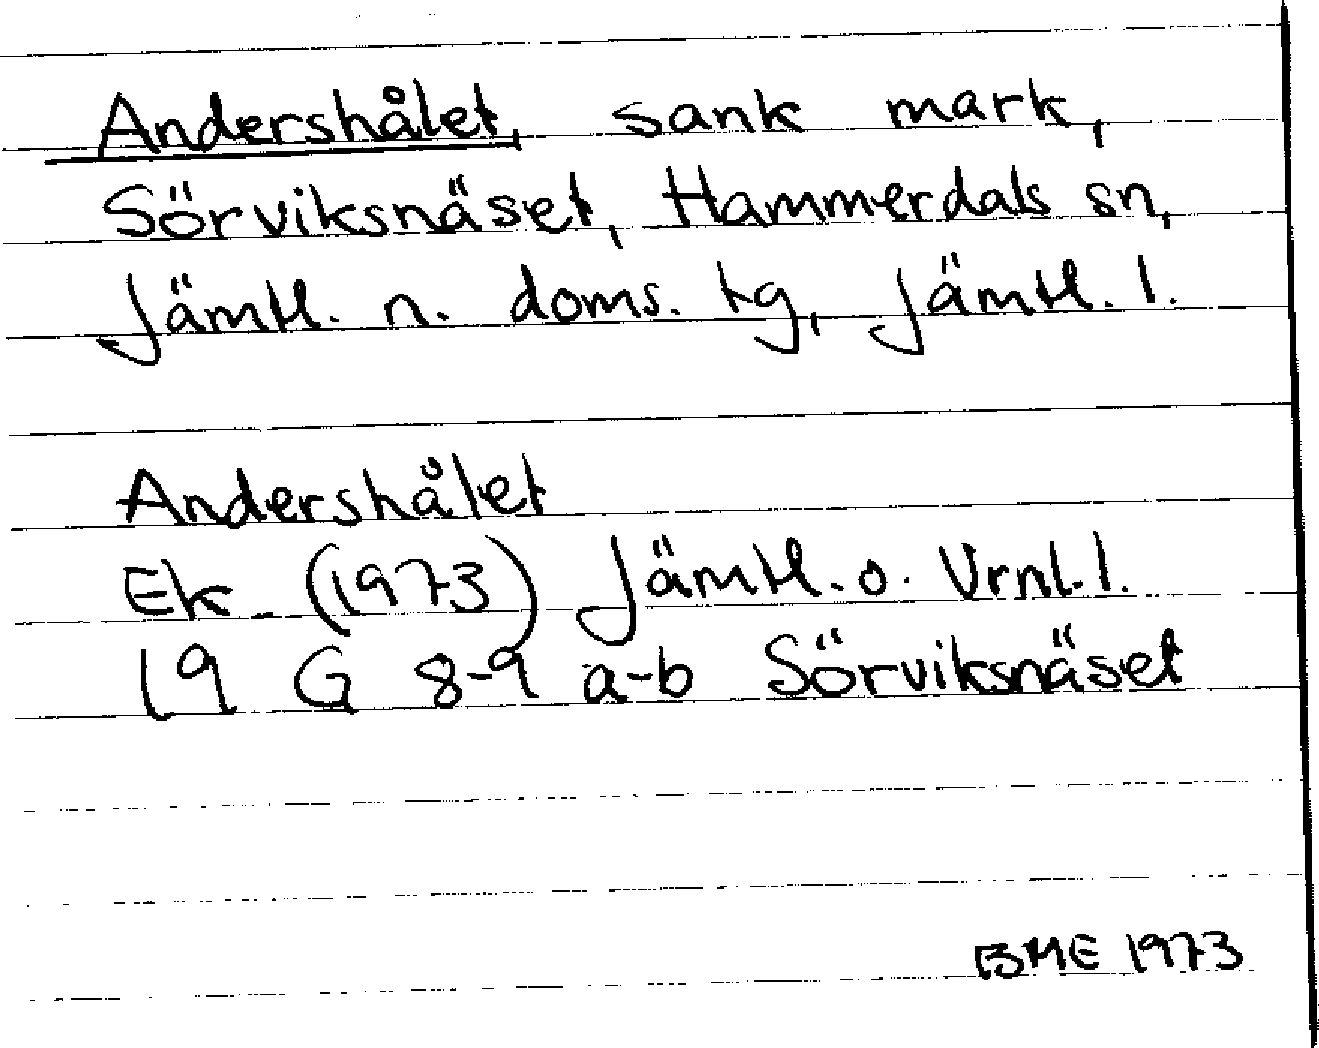 Andershålet, sank mark,
Sörviksnäset, Hammerdals sn,
Jämtl. n. doms. tg, Jämtl. l.
Andershålet
Ek. (1973) Jämtl. o. Vrnl. l.
19 G 8-9 a-b Sörviksnäset
BME 1973